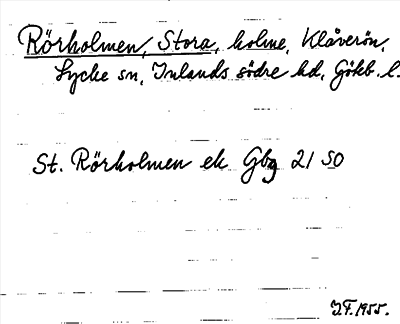 Rörholmen, Stora, holme, Klåverön,
Lycke sn, Inlands södre hd, Götéb. l.
St. Rörholmen ek Gbg 21 SO
J.F. 1955.